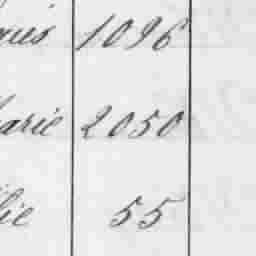 1096
arie 2050
lie 55